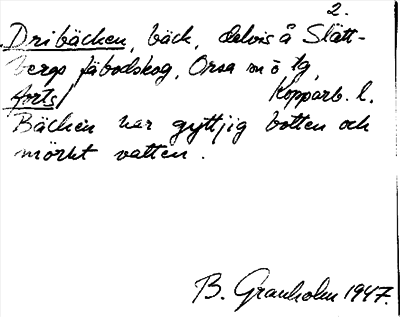 2.
Dribäcken, bäck, delvis å Slätt-
bergs fäbodskog, Orsa sn ö tg,
forts / Kopparb. l.
Bäcken har gyttjig botten och
mörkt vatten.
B. Granholm 1947.